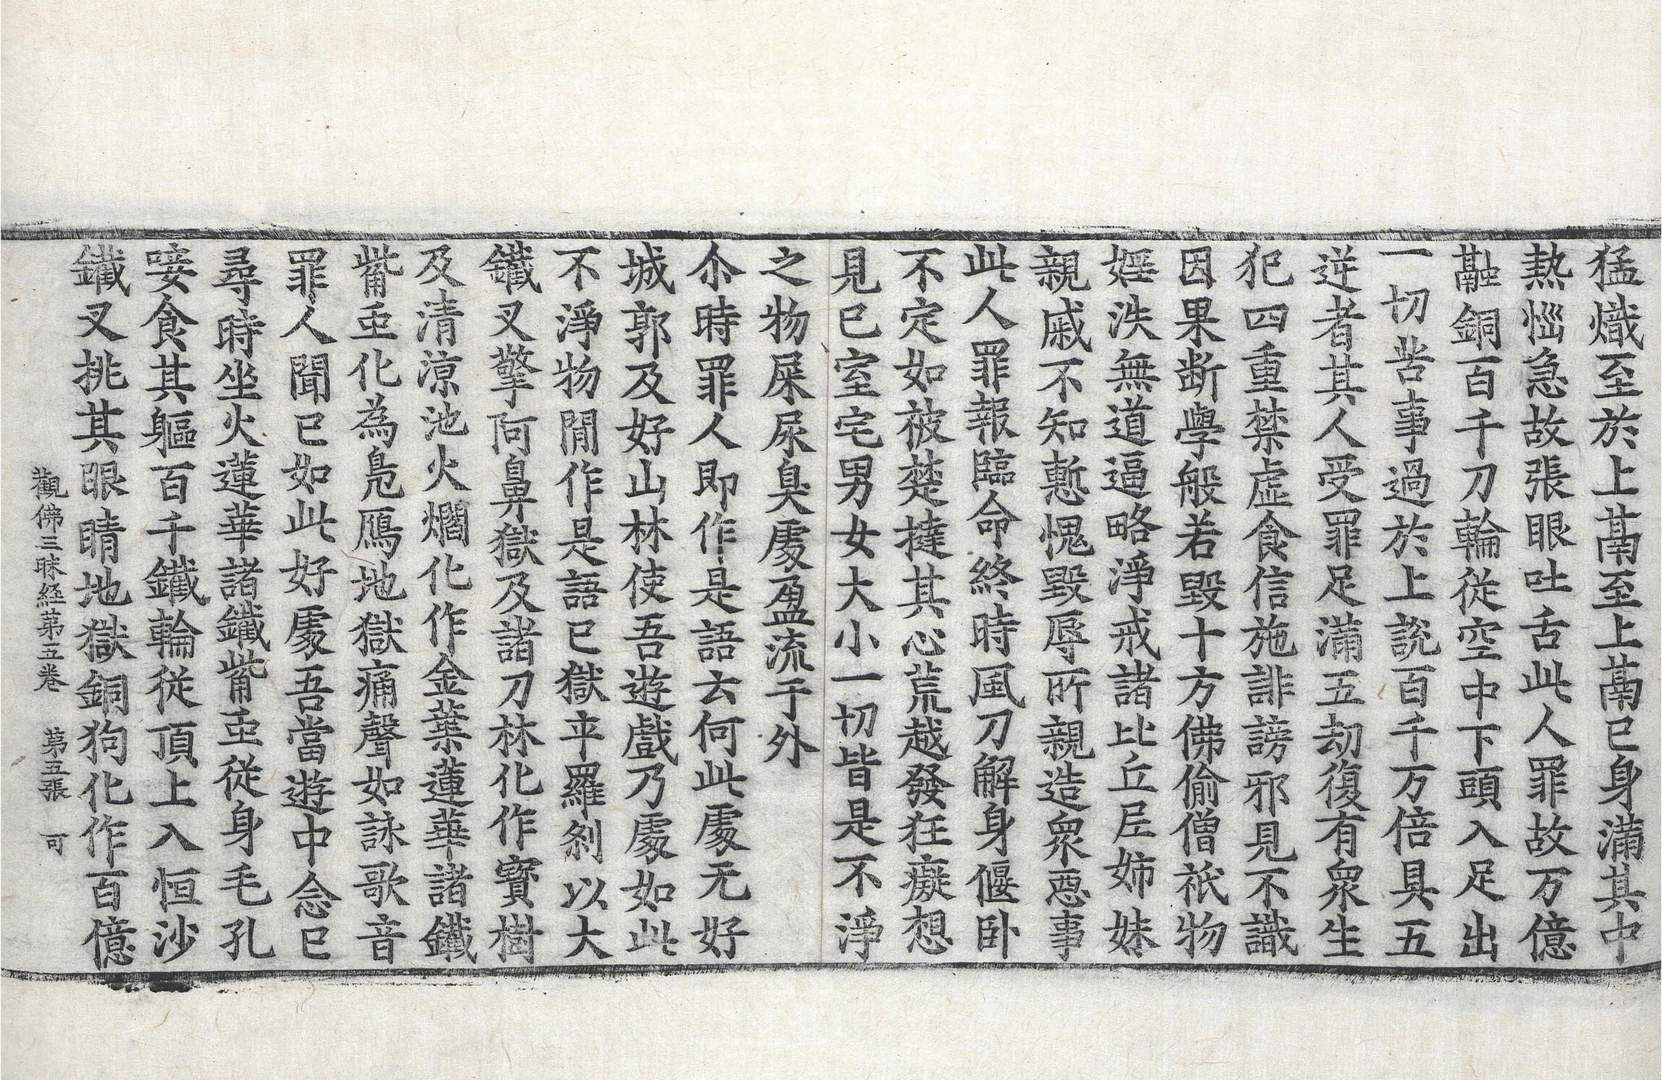 猛熾至於上鬲至上鬲已身滿其中
熱惱急故張眼吐舌此人罪故万億
融銅百千刀輪從空中下頭入足出
一切苦事過於上說百千万倍具五
逆者其人受罪足滿五劫復有衆生
犯四重禁虛食信施誹謗邪見不識
因果断學般若毀十方佛偷僧祇物
婬泆無道逼略淨戒諸比丘尼姉妹
親戚不知慙愧毀辱所親造衆惡事
此人罪報臨命終時風刀解身偃卧
不定如被楚撻其心荒越發狂癡想
見已室宅男女大小一切皆是不淨
之物屎尿臭處盈流于外
尒時罪人即作是語云何此處无好
城郭及好山林使吾遊戲乃處如此
不淨物閒作是語已獄卒羅刹以大
鐵叉擎阿鼻獄及諸刀林化作寶樹
及清涼池火爓化作金葉蓮華諸鐵
觜虫化為鳧鴈地獄痛聲如詠歌音
罪人聞已如此好處吾當遊中念已
尋時坐火蓮華諸鐵觜虫從身毛孔
唼食其軀百千鐵輪從頂上入恒沙
鐵叉挑其眼睛地獄銅狗化作百億
觀佛三昧經第五卷　第五張　可